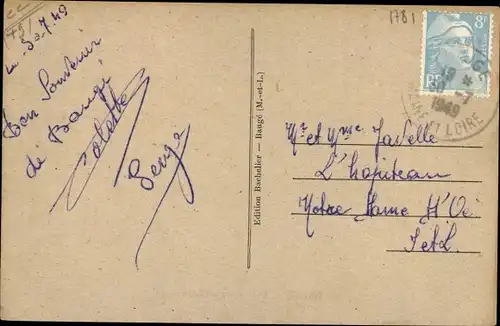 le 30.7.49
Bon Souvenir
de Baugé
Colette
Serge
Edition Bachelier — Baugé (M.-et-L.)
1781
8F
RF
1949
ET LOIRE
Mr et Mme Javelle
L'hopiteau
Notre Dame d'
I et L.